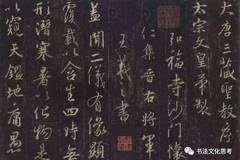 大唐三藏聖教序
太宗文皇帝製
弘福寺沙門懷
仁集晉右將軍
王羲之書
蓋聞二儀有像顯
覆載以含生四時無
形潛寒暑以化物是
以窺天鑑地庸愚
书法文化思考